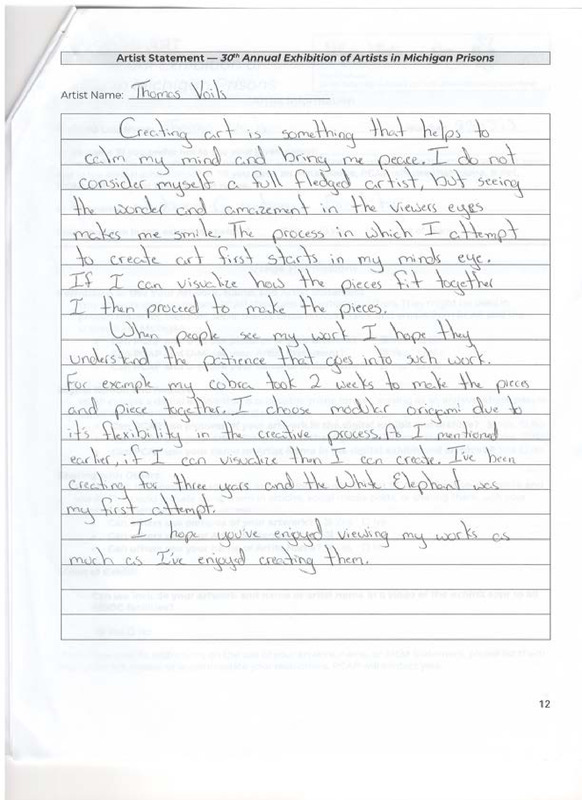 Artist Statement — 30th Annual Exhibition of Artists in Michigan Prisons
Artist Name: Thomas Voils
Creating art is something that helps to
calm my mind and bring me peace. I do not
consider myself a full fledged artist, but seeing
the wonder and amazement in the viewers eyes
makes me smile. The process in which I attempt
to create art first starts in my minds eye.
If I can visualize how the pieces fit together
I then proceed to make the pieces.
When people see my work I hope they
understand the patience that goes into such work.
For example my cobra took 2 weeks to make the pieces
and piece together. I choose modular origami due to
it's flexibility in the creative process. As I mentioned
earlier, if I can visualize then I can create. I've been
creating for three years and the White Elephant was
my first attempt.
I hope you've enjoyed viewing my works as
much as I've enjoyed creating them.
12